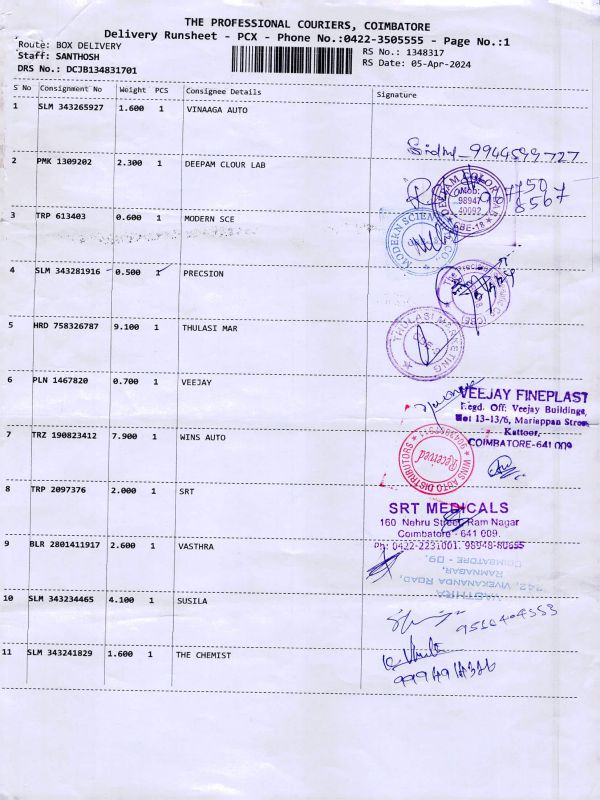 THE PROFESSIONAL COURIERS, COIMBATORE
Delivery Runsheet - PCX - Phone No.:0422-3505555 - Page No.:1
Route: BOX DELIVERY
RS No.: 1348317
Staff: SANTHOSH
RS Date: 05-Apr-2024
DRS No.: DCJB134831701
S No Consignment No Weight PCS Consignee Details Signature
1 SLM 343265927 1.600 1 VINAAGA AUTO
9944599727
2 PMK 1309202 2.300 1 DEEPAM CLOUR LAB
Mob:
98947
40092
CBE-18
3 TRP 613403 0.600 1 MODERN SCE
MODERN SCIEN
4 SLM 343281916 0.500 1 PRECSION
The Precision
5 HRD 758326787 9.100 1 THULASI MAR
THULASI MARKETING
6 PLN 1467820 0.700 1 VEEJAY
VEEJAY FINEPLAST
Regd. Off: Veejay Buildings,
13-13/6, Mariappan Street
Kattoor,
COIMBATORE-641 009
7 TRZ 190823412 7.900 1 WINS AUTO
WINS AUTO DISTRIBUTORS
Received
8 TRP 2097376 2.000 1 SRT
SRT MEDICALS
160 Nehru Street, Ram Nagar
Coimbatore - 641 009.
Ph: 0422-2231001. 98948-80655
9 BLR 2801411917 2.600 1 VASTHRA
VASTHRA
242, VIVEKANANDA ROAD,
RAMNAGAR,
COIMBATORE - 09.
10 SLM 343234465 4.100 1 SUSILA
11 SLM 343241829 1.600 1 THE CHEMIST